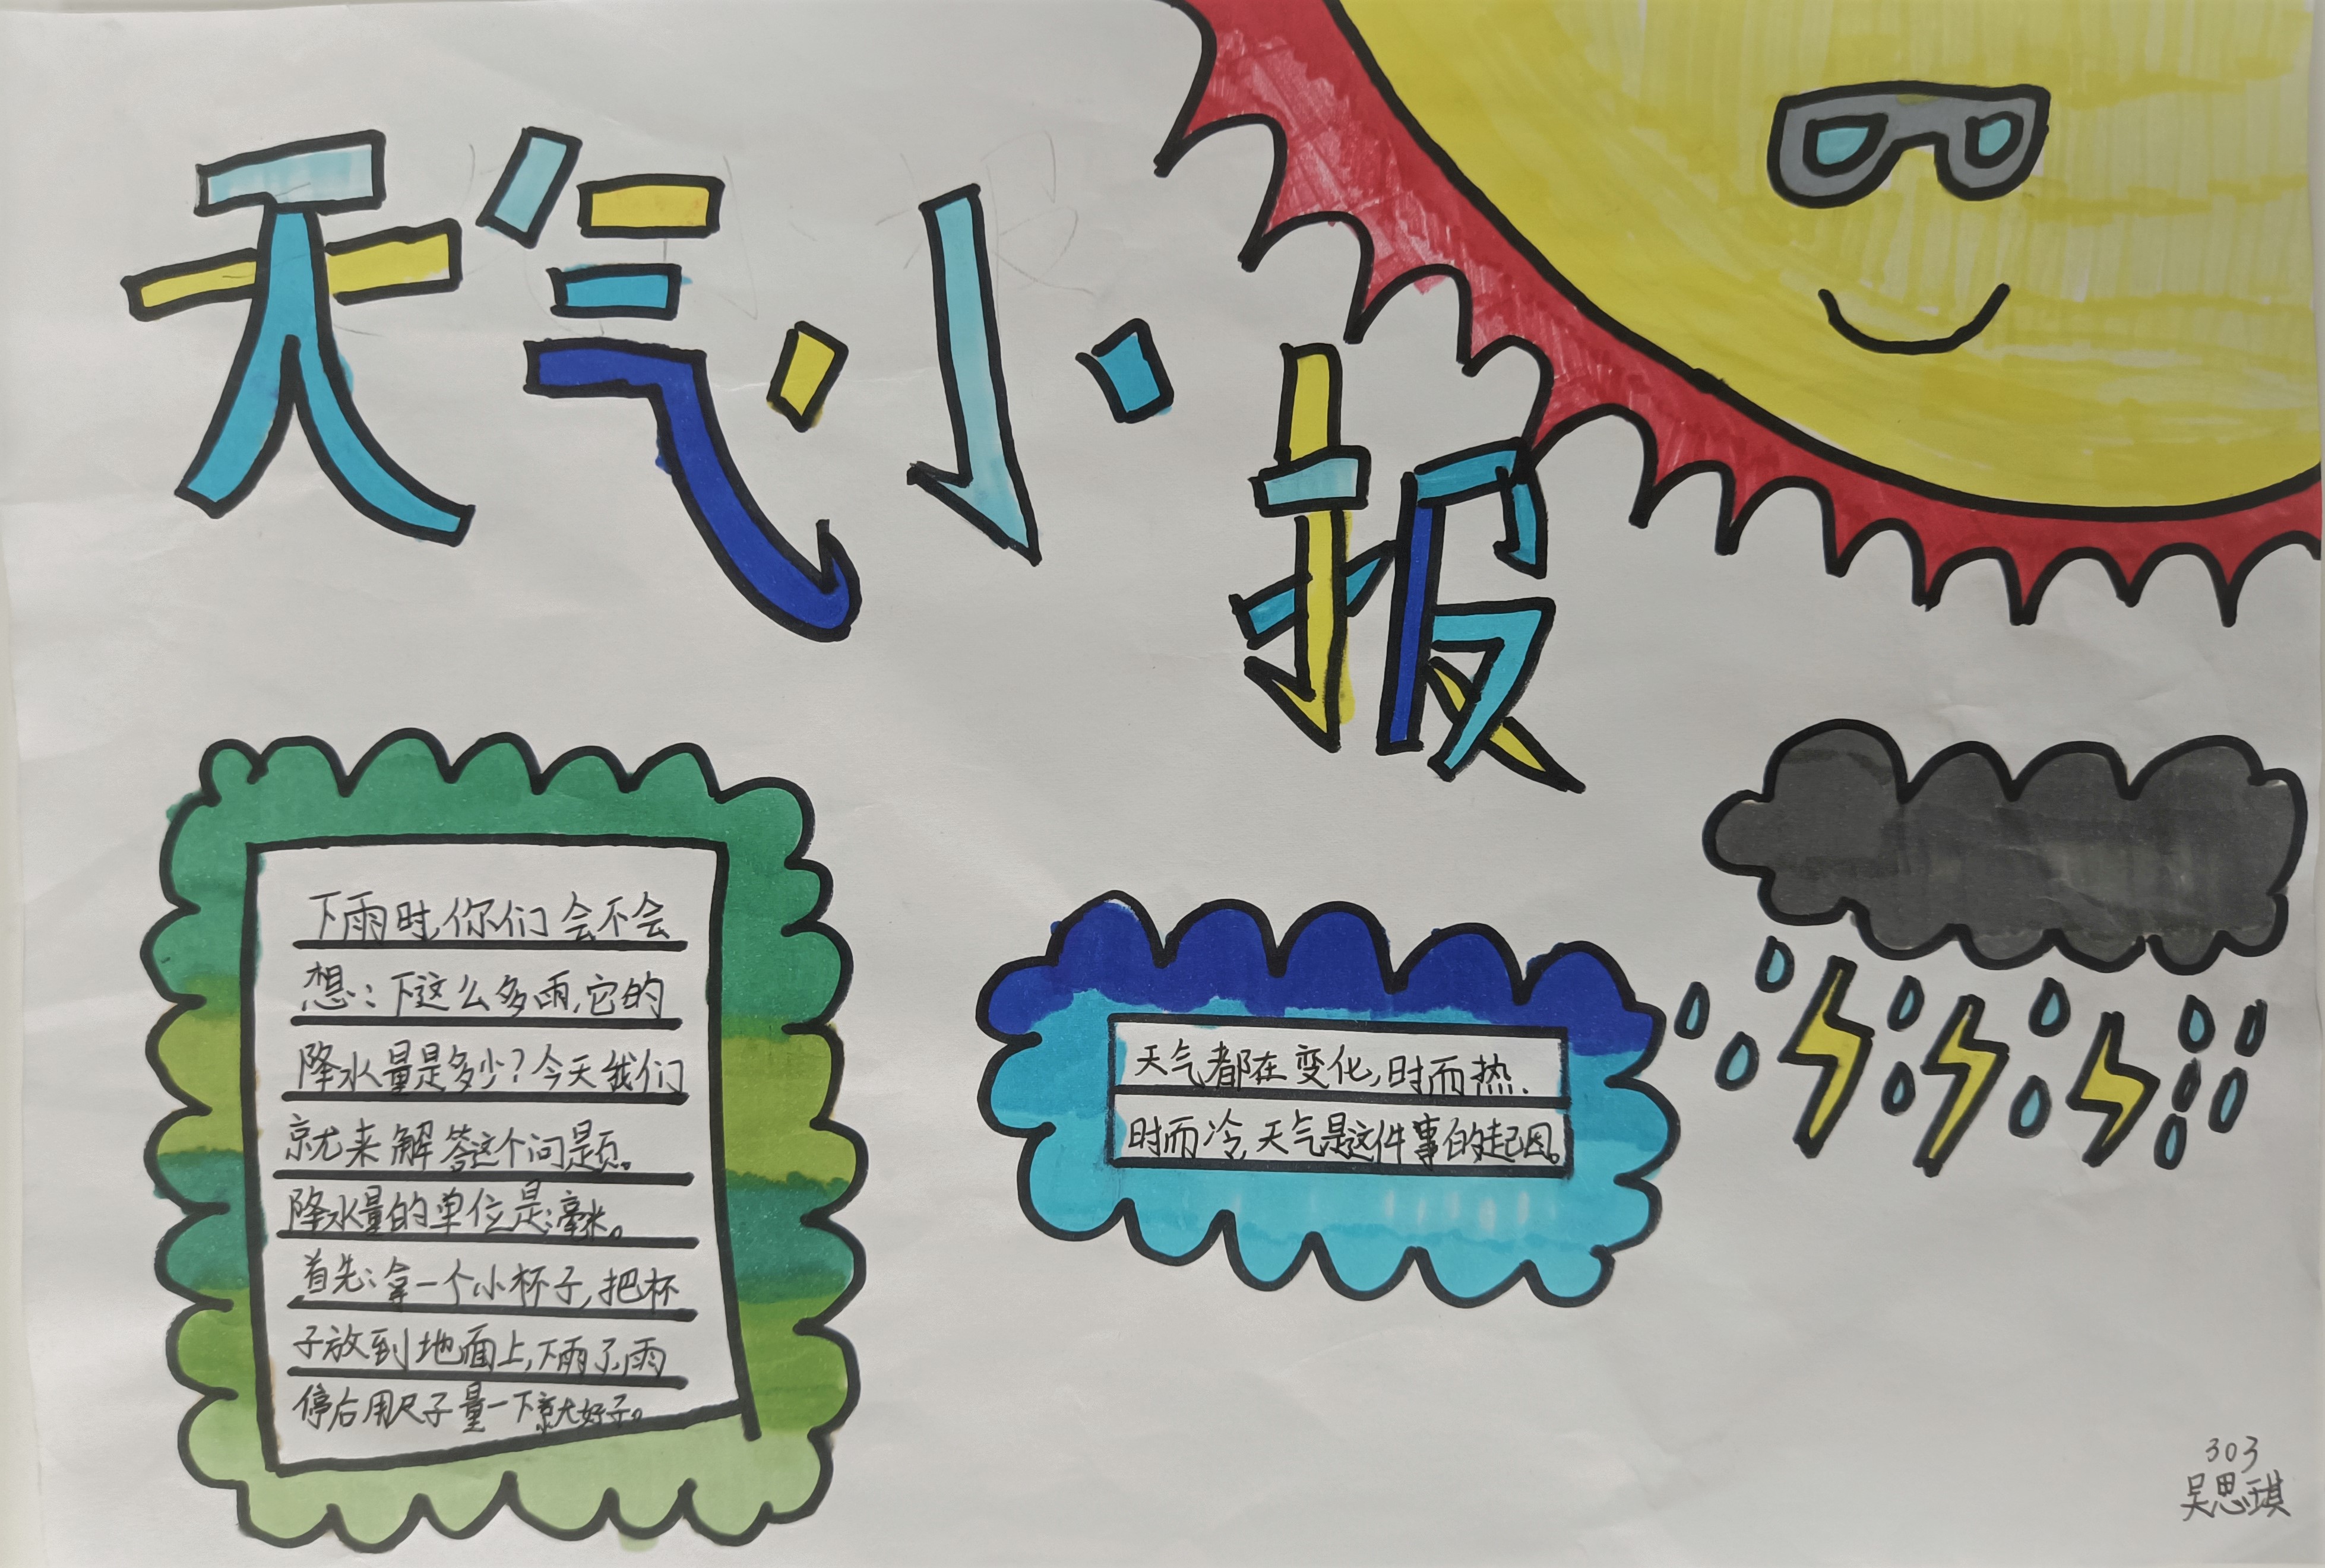 天气小报
下雨时,你们会不会
想:下这么多雨,它的
降水量是多少?今天我们
就来解答这个问题。
降水量的单位是:毫米。
首先:拿一个小杯子,把杯
子放到地面上,下雨了,雨
停后用尺子量一下就好了。
天气都在变化,时而热.
时而冷,天气是这件事的起因。
303
吴思琪